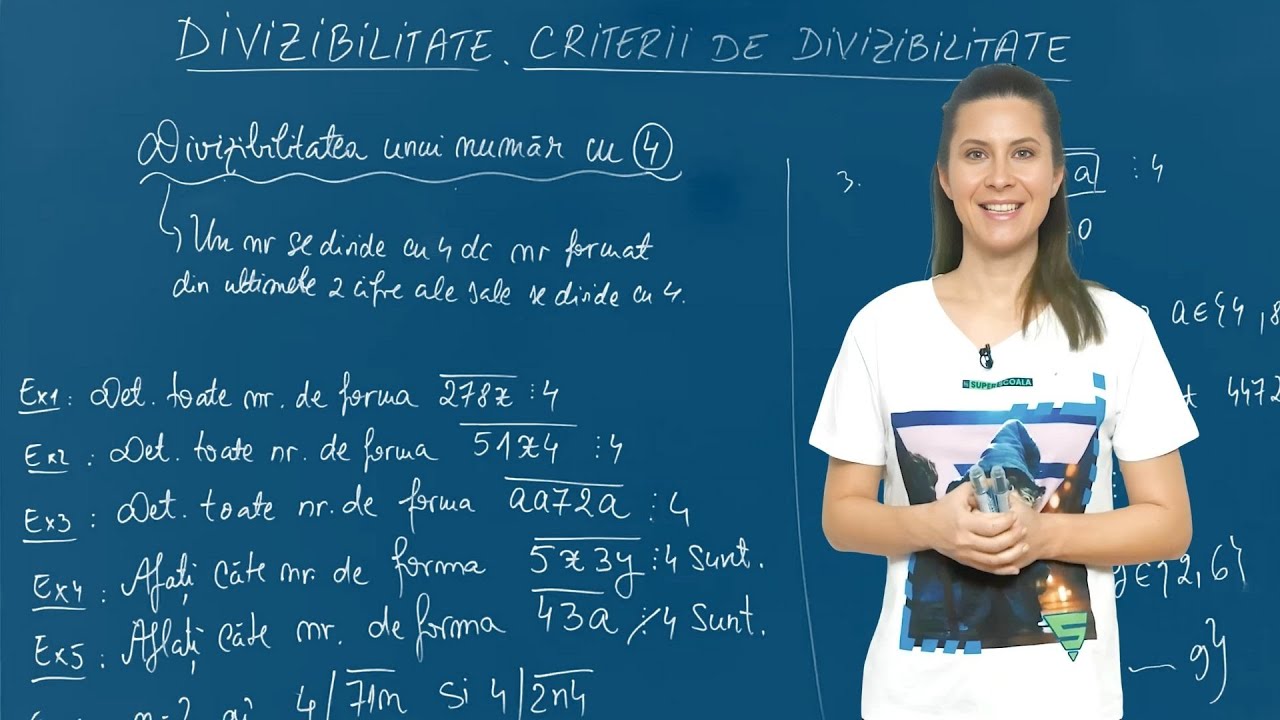 DIVIZIBILITATE. CRITERII DE DIVIZIBILITATE
Divizibilitatea unui număr cu 4
Un nr se divide cu 4 dc nr format
din ultimele 2 cifre ale sale se divide cu 4.
Ex1: Det. toate nr. de forma 278x ⋮ 4
Ex2: Det. toate nr. de forma 51x4 ⋮ 4
Ex3: Det. toate nr. de forma aa72a ⋮ 4
Ex4: Aflați câte nr. de forma 5x3y ⋮ 4 sunt.
Ex5: Aflați câte nr. de forma 43a ⋮̸ 4 sunt.
4/71n și 4/2n4
3. a ⋮ 4
0
a∈{4,8
4472
y∈{2,6}
9}
SUPERESCOALA
S